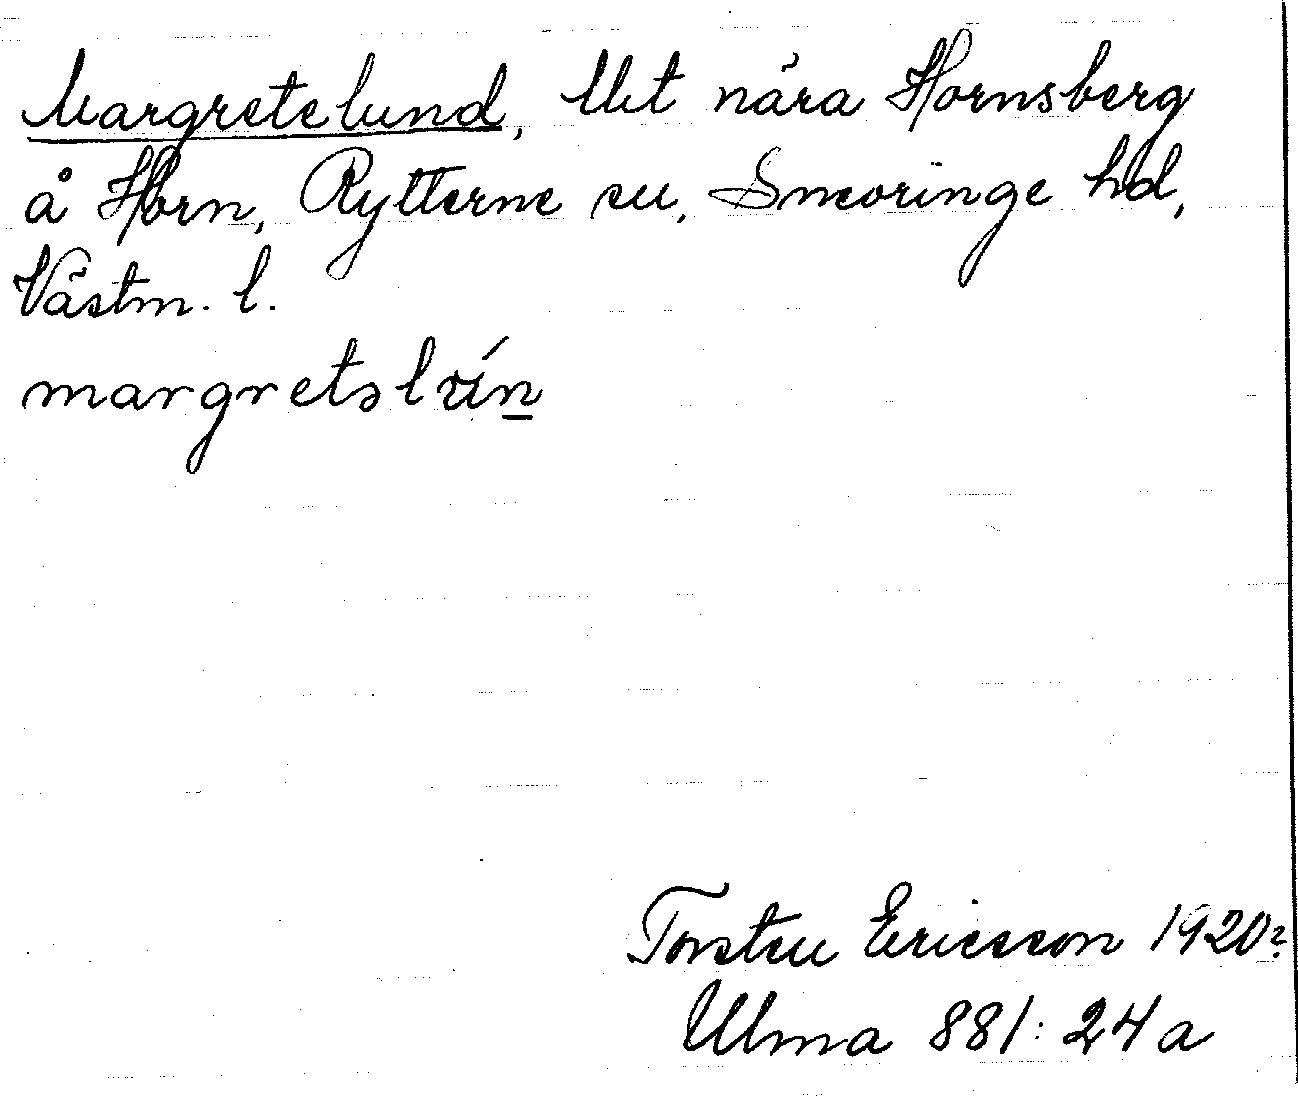 Margretelund, Ut nära Hornsberg
å Horn, Rytterne sn, Snevringe hd,
Västm. l.
margretslún
Torsten Ericsson 1920?
Ulma 881:24a